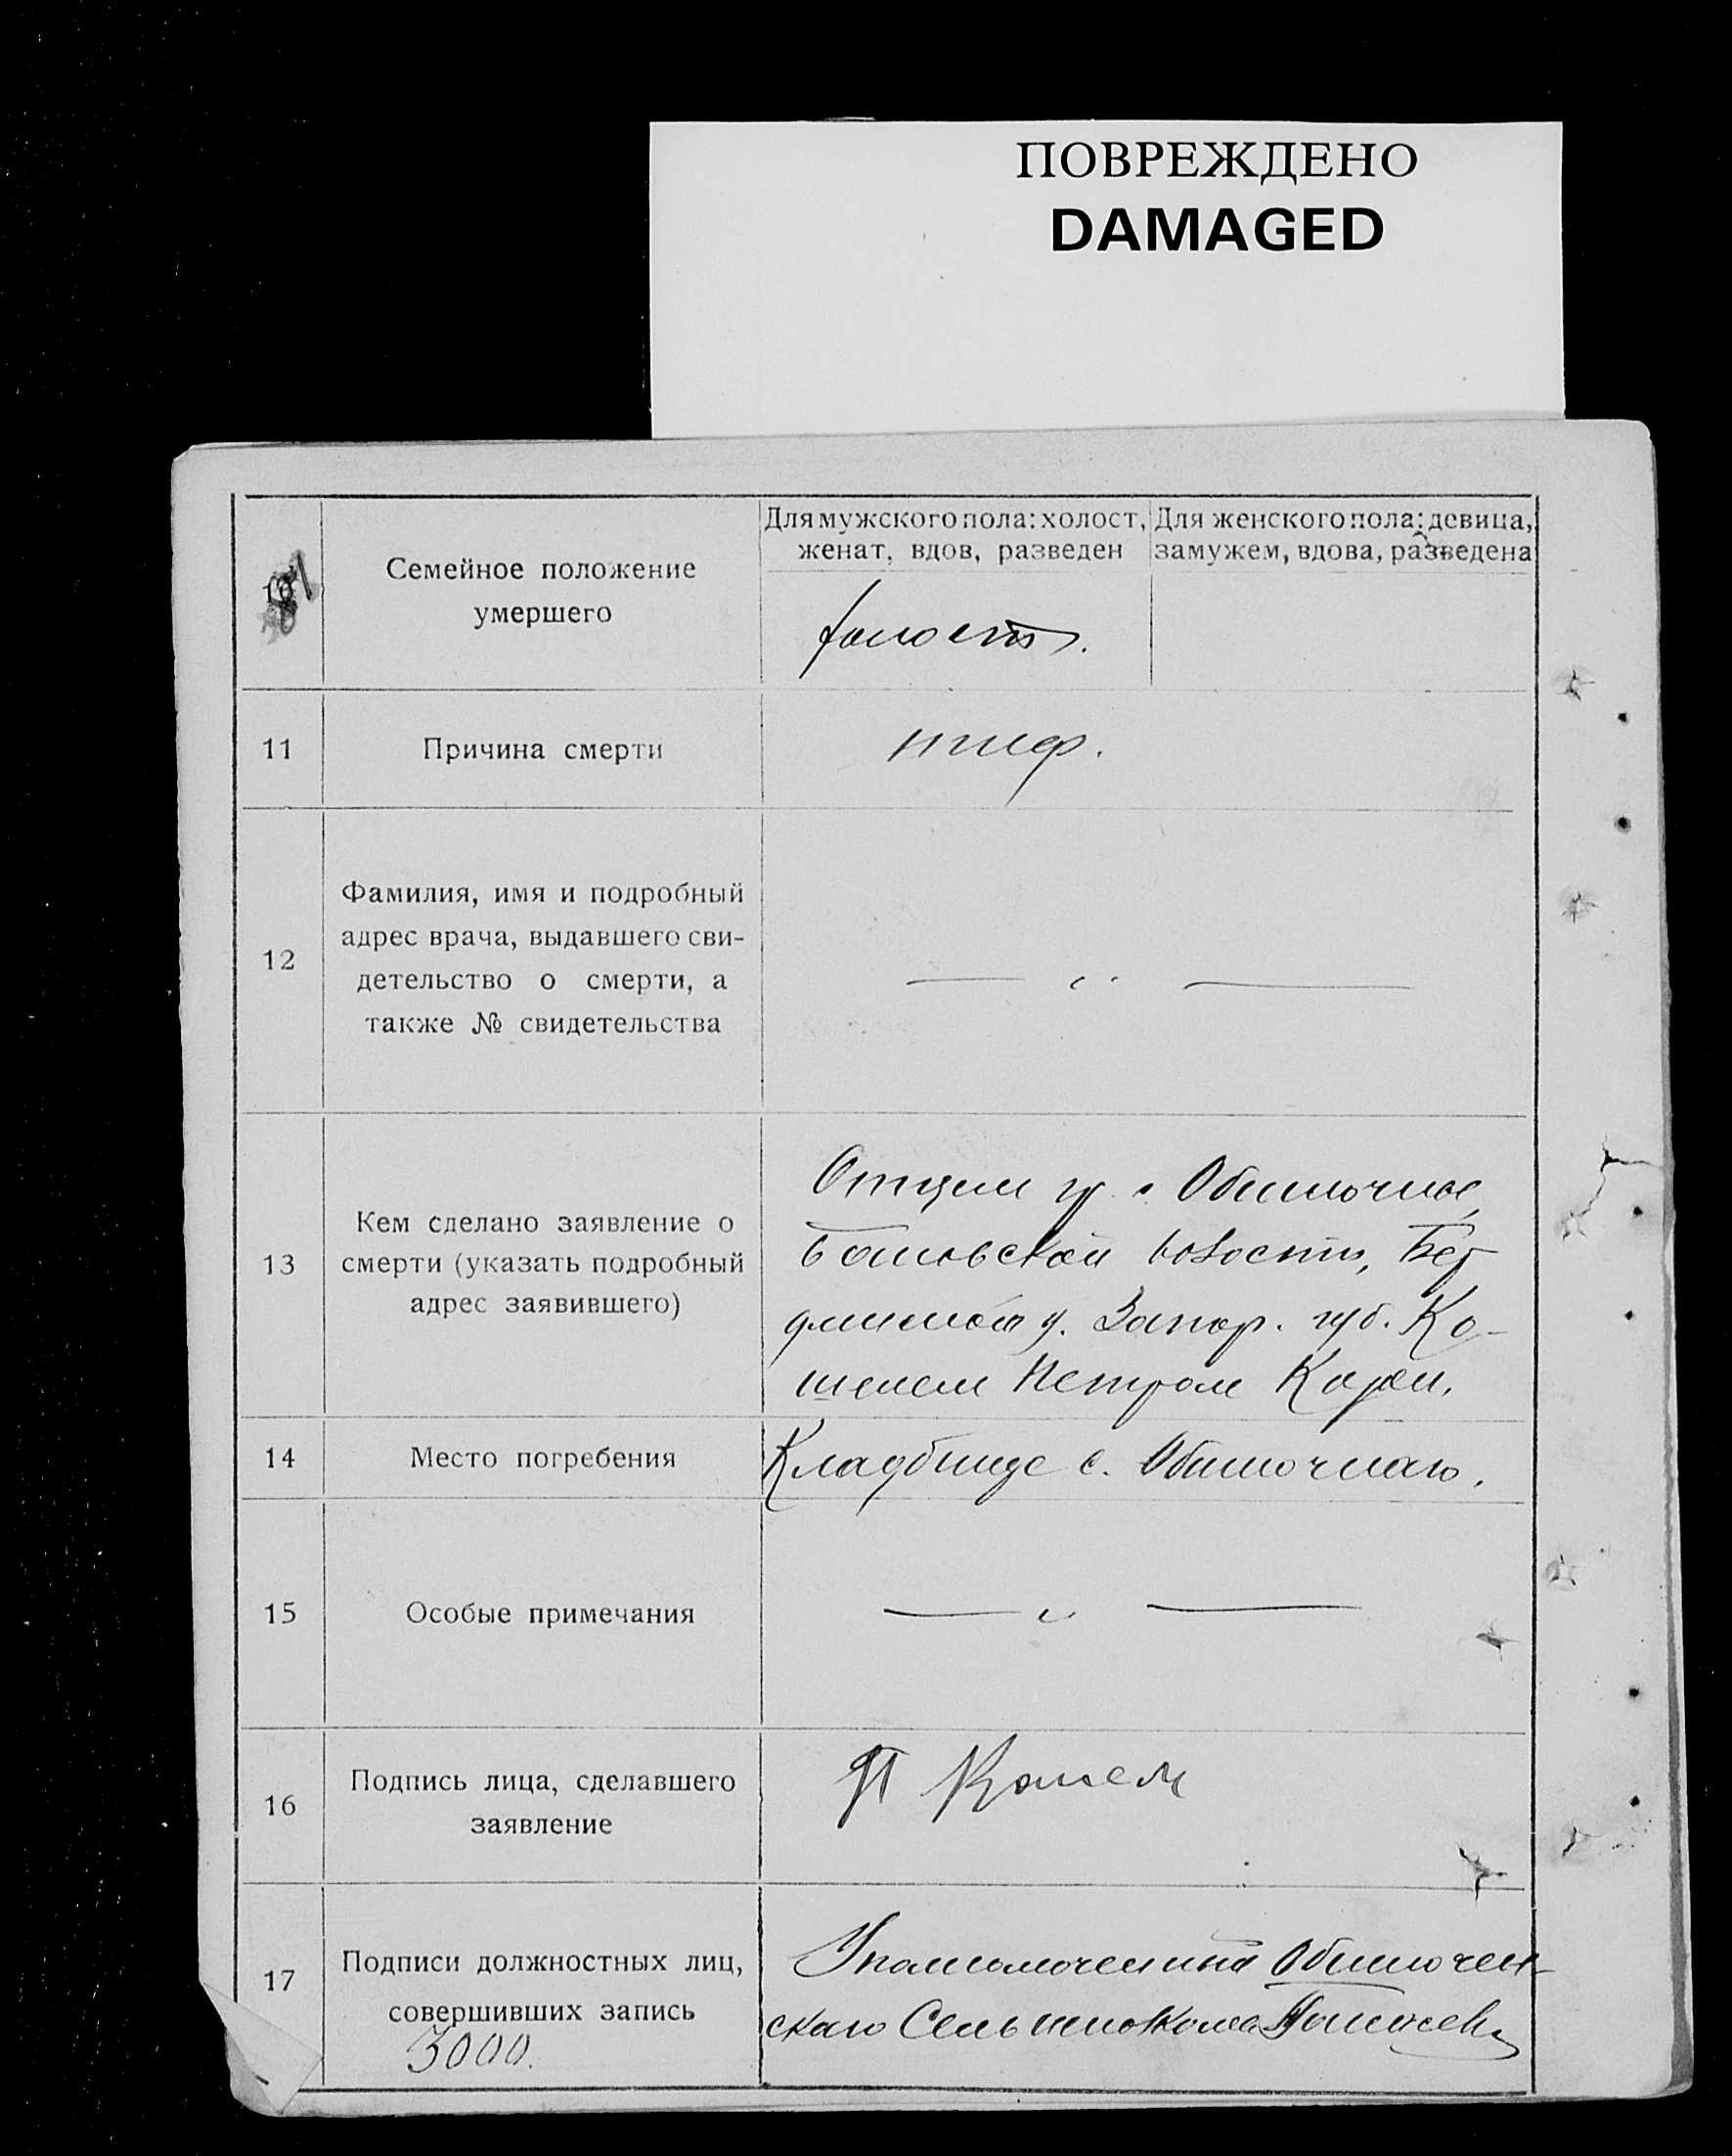 ПОВРЕЖДЕНО
DAMAGED
Семейное положение
умершего
Для мужского пола: холост,
женат, вдов, разведен
Для женского пола: девица,
замужем, вдова, разведена
холостъ.
11
Причина смерти
тиф.
12
Фамилия, имя и подробный
адрес врача, выдавшего сви-
детельство о смерти, а
также № свидетельства
— „ —
13
Кем сделано заявление о
смерти (указать подробный
адрес заявившего)
Отцем гр. с. Обиточное,
волости, Бер
у. Запор. губ. Ко-
Петром
14
Место погребения
Кладбище с. Обиточнаго.
15
Особые примечания
— „ —
16
Подпись лица, сделавшего
заявление
П
17
Подписи должностных лиц,
совершивших запись
3000.
Обиточен-
скаго